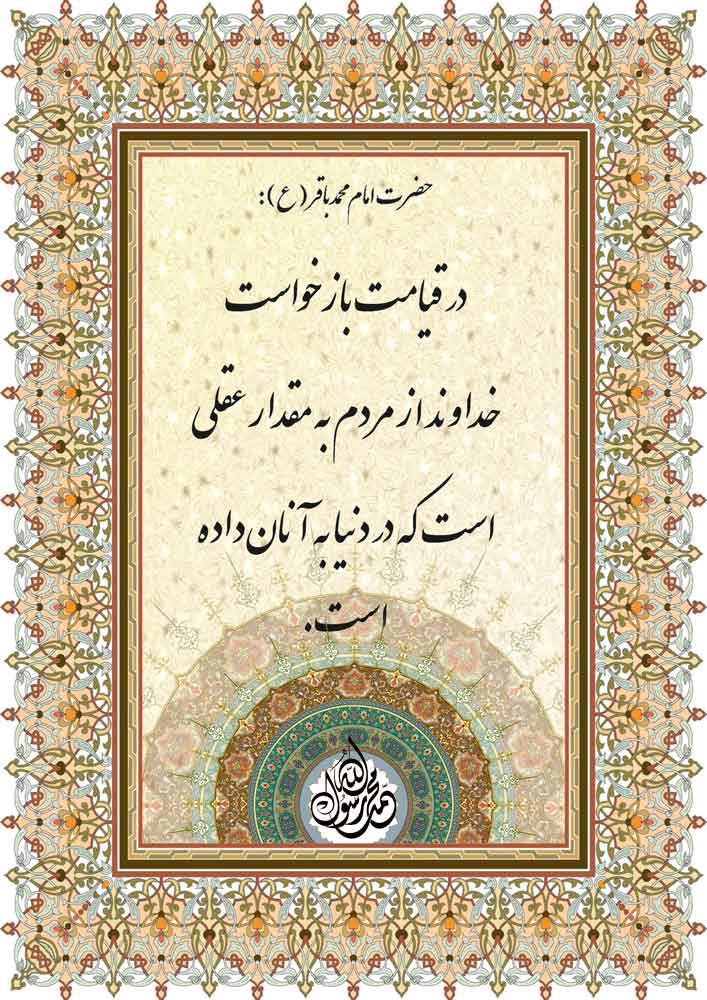 حضرت امام محمد باقر (ع):
در قیامت بازخواست
خداوند از مردم به مقدار عقلی
است که در دنیا به آنان داده
است.
محمد رسول الله